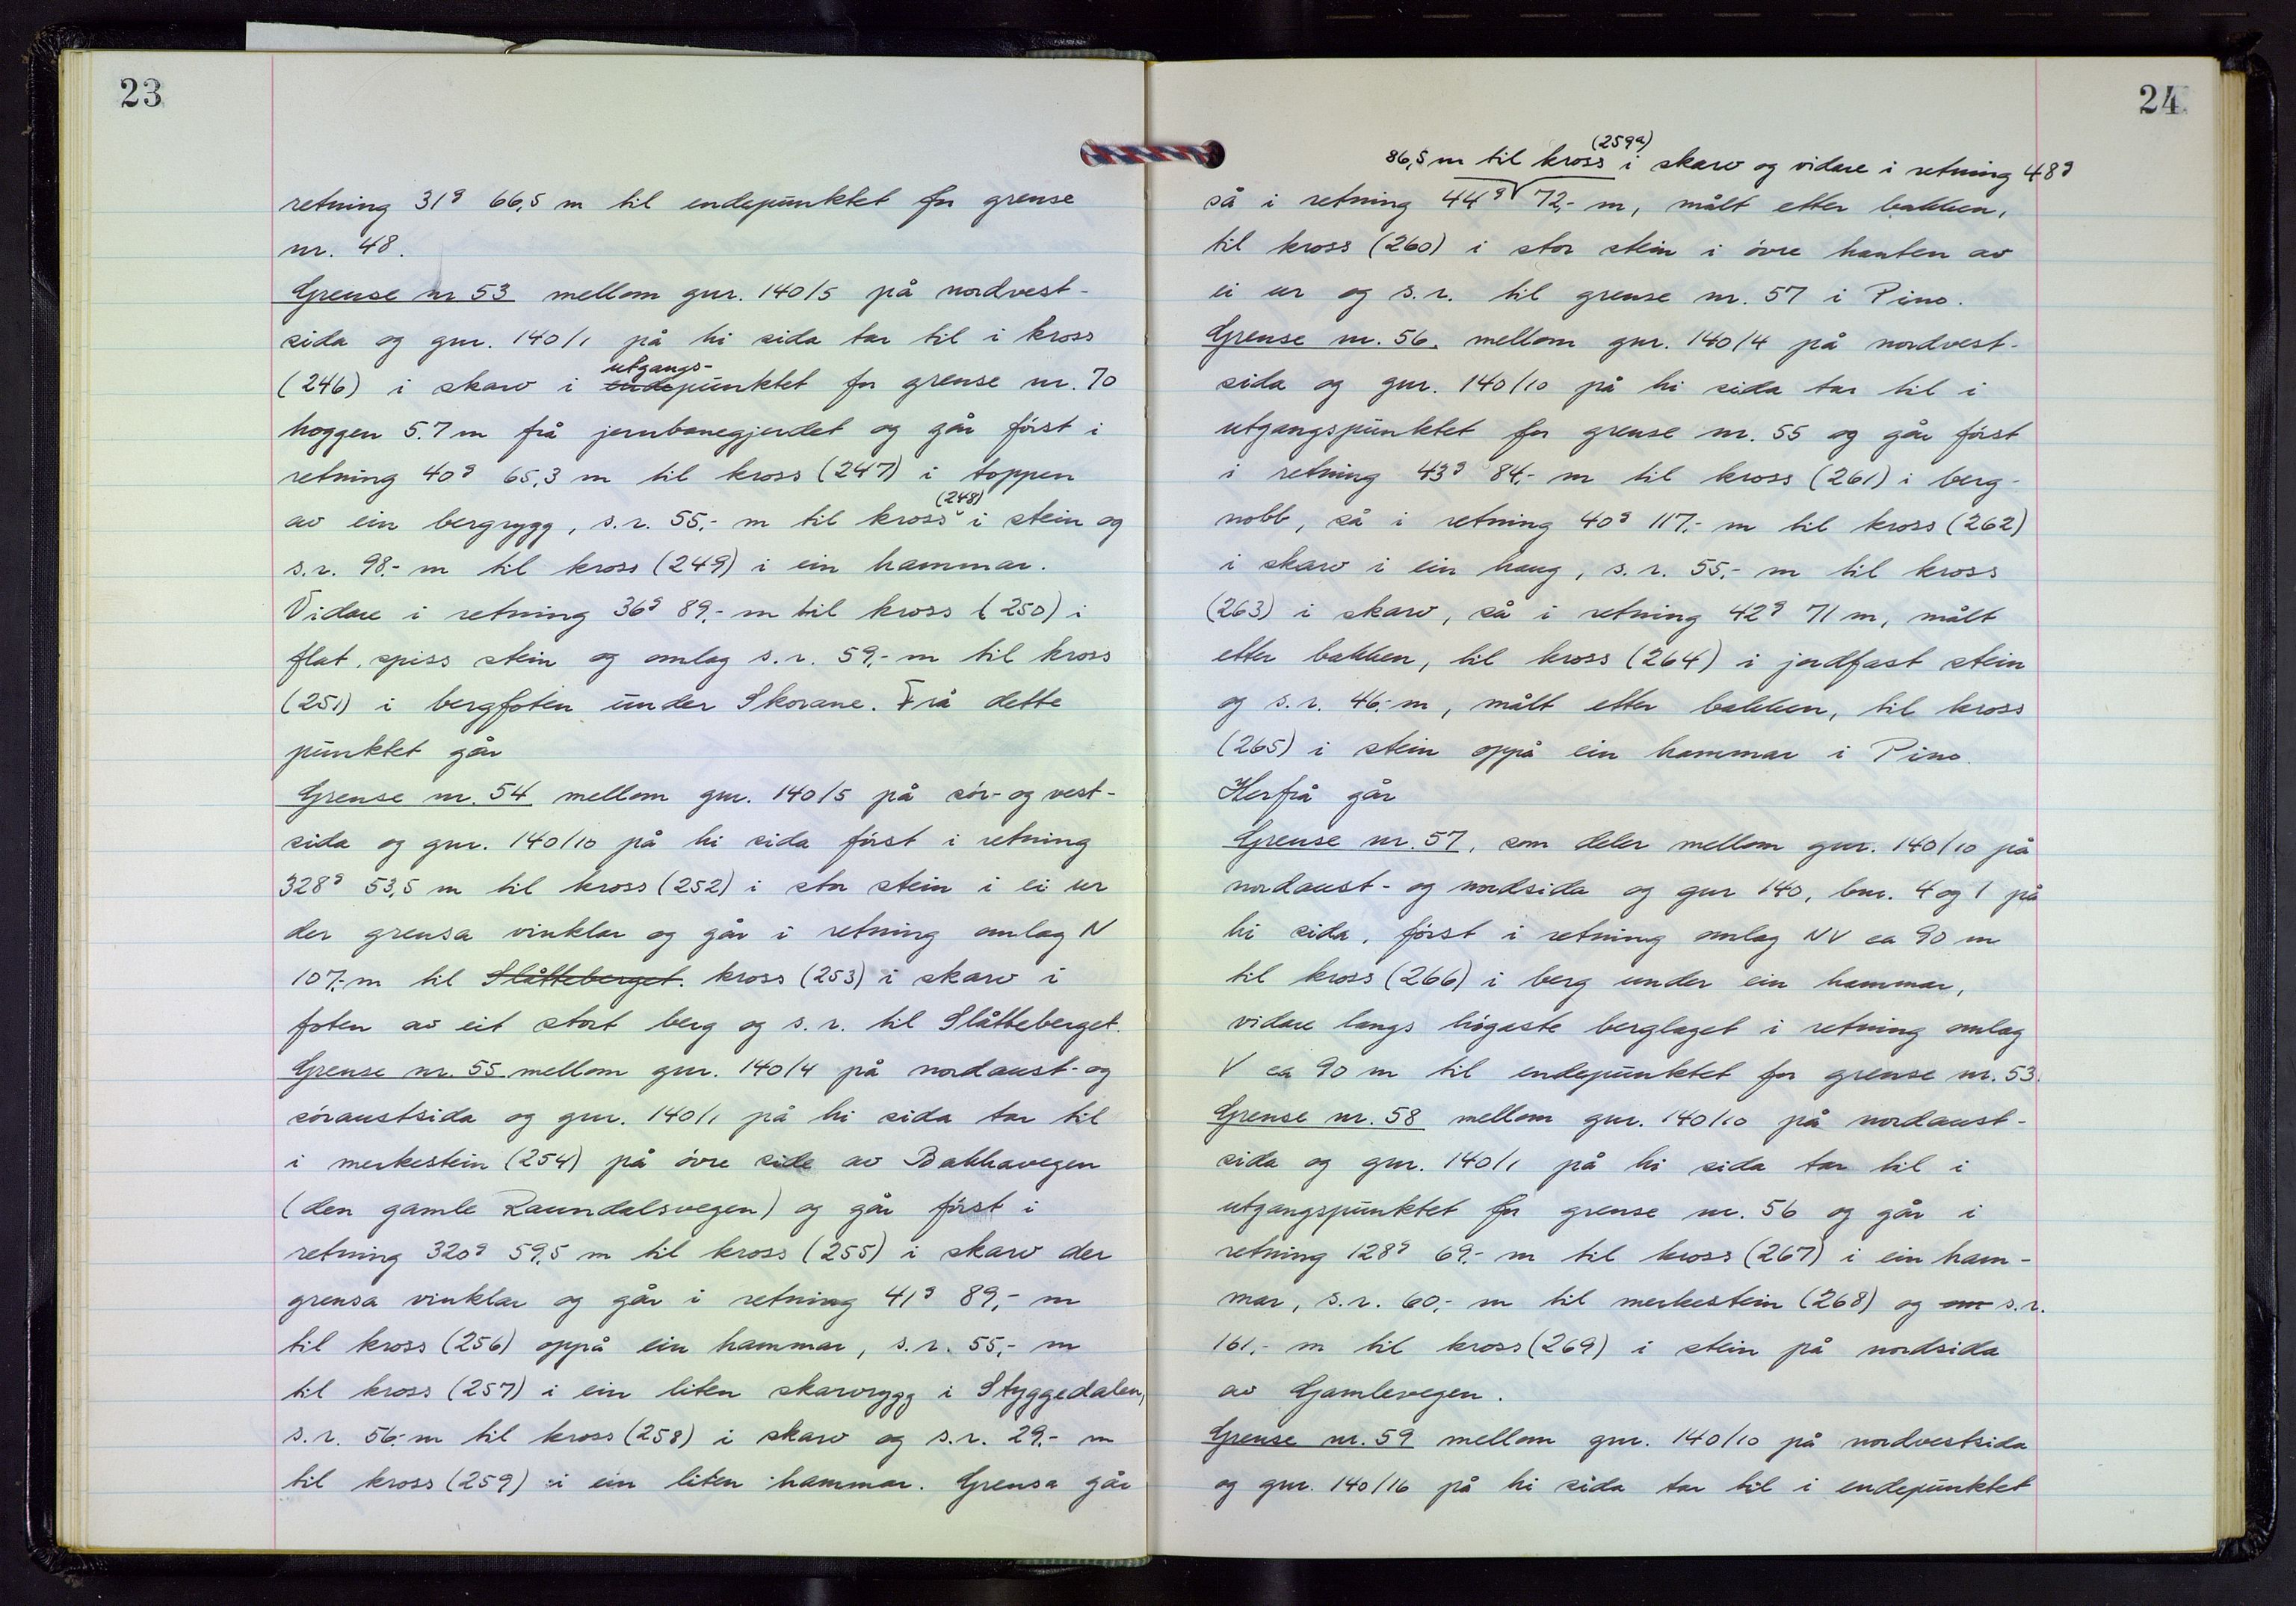 23
retning 31g 66,5 m til endepunktet for grense
nr. 48.
Grense nr 53 mellom gnr. 140/5 på nordvest-
sida og gnr. 140/1 på hi sida tar til i kross
(246) i skarv i utgangs- endepunktet for grense nr. 70
hoggen 5.7 m frå jernbanegjerdet og går först i
retning 40g 65,3 m til kross (247) i toppen
av ein bergrygg, s.r. 55,- m til kross (248) i stein og
s.r. 98,- m til kross (249) i ein hammar.
Vidare i retning 36g 89,- m til kross (250) i
flat, spiss stein og omlag s.r. 59,- m til kross
(251) i bergfoten under Skorane. Frå dette
punktet går
Grense nr. 54 mellom gnr. 140/5 på sör- og vest-
sida og gnr. 140/10 på hi sida först i retning
328g 53,5 m til kross (252) i stor stein i ei ur
der grensa vinklar og går i retning omlag N
107,- m til Slåtteberget. kross (253) i skarv i
foten av eit stort berg og s.r. til Slåtteberget.
Grense nr. 55 mellom gnr. 140/4 på nordaust- og
söraustsida og gnr. 140/1 på hi sida tar til
i merkestein (254) på övre side av Bakkavegen
(den gamle Raundalsvegen) og går först i
retning 320g 59,5 m til kross (255) i skarv der
grensa vinklar og går i retning 41g 89,- m
til kross (256) oppå ein hammar, s.r. 55,- m
til kross (257) i ein liten skarvrygg i Styggedalen,
s.r. 56,- m til kross (258) i skarv og s.r. 29,- m
til kross (259) i ein liten hammar. Grensa går
24
86,5 m til kross (259a) i skarv og vidare i retning 48g
så i retning 44g 72,- m, målt etter bakken,
til kross (260) i stor stein i övre kanten av
ei ur og s.r. til grense nr. 57 i Pino.
Grense nr. 56. mellom gnr. 140/4 på nordvest-
sida og gnr. 140/10 på hi sida tar til i
utgangspunktet for grense nr. 55 og går först
i retning 43g 84,- m til kross (261) i berg-
nobb, så i retning 40g 117,- m til kross (262)
i skarv i ein haug, s.r. 55,- m til kross
(263) i skarv, så i retning 42g 71 m, målt
etter bakken, til kross (264) i jordfast stein
og s.r. 46,- m, målt etter bakken, til kross
(265) i stein oppå ein hammar i Pino.
Herfrå går
Grense nr. 57, som deler mellom gnr. 140/10 på
nordaust- og nordsida og gnr 140, bnr. 4 og 1 på
hi sida, först i retning omlag NV ca 90 m
til kross (266) i berg under ein hammar,
vidare langs högaste berglaget i retning omlag
V ca 90 m til endepunktet for grense nr. 53.
Grense nr. 58 mellom gnr. 140/10 på nordaust-
sida og gnr. 140/1 på hi sida tar til i
utgangspunktet for grense nr. 56 og går i
retning 128g 69,- m til kross (267) i ein ham-
mar, s.r. 60,- m til merkestein (268) og om s.r.
161,- m til kross (269) i stein på nordsida
av Gamlevegen.
Grense nr. 59 mellom gnr. 140/10 på nordvestsida
og gnr. 140/16 på hi sida tar til i endepunktet